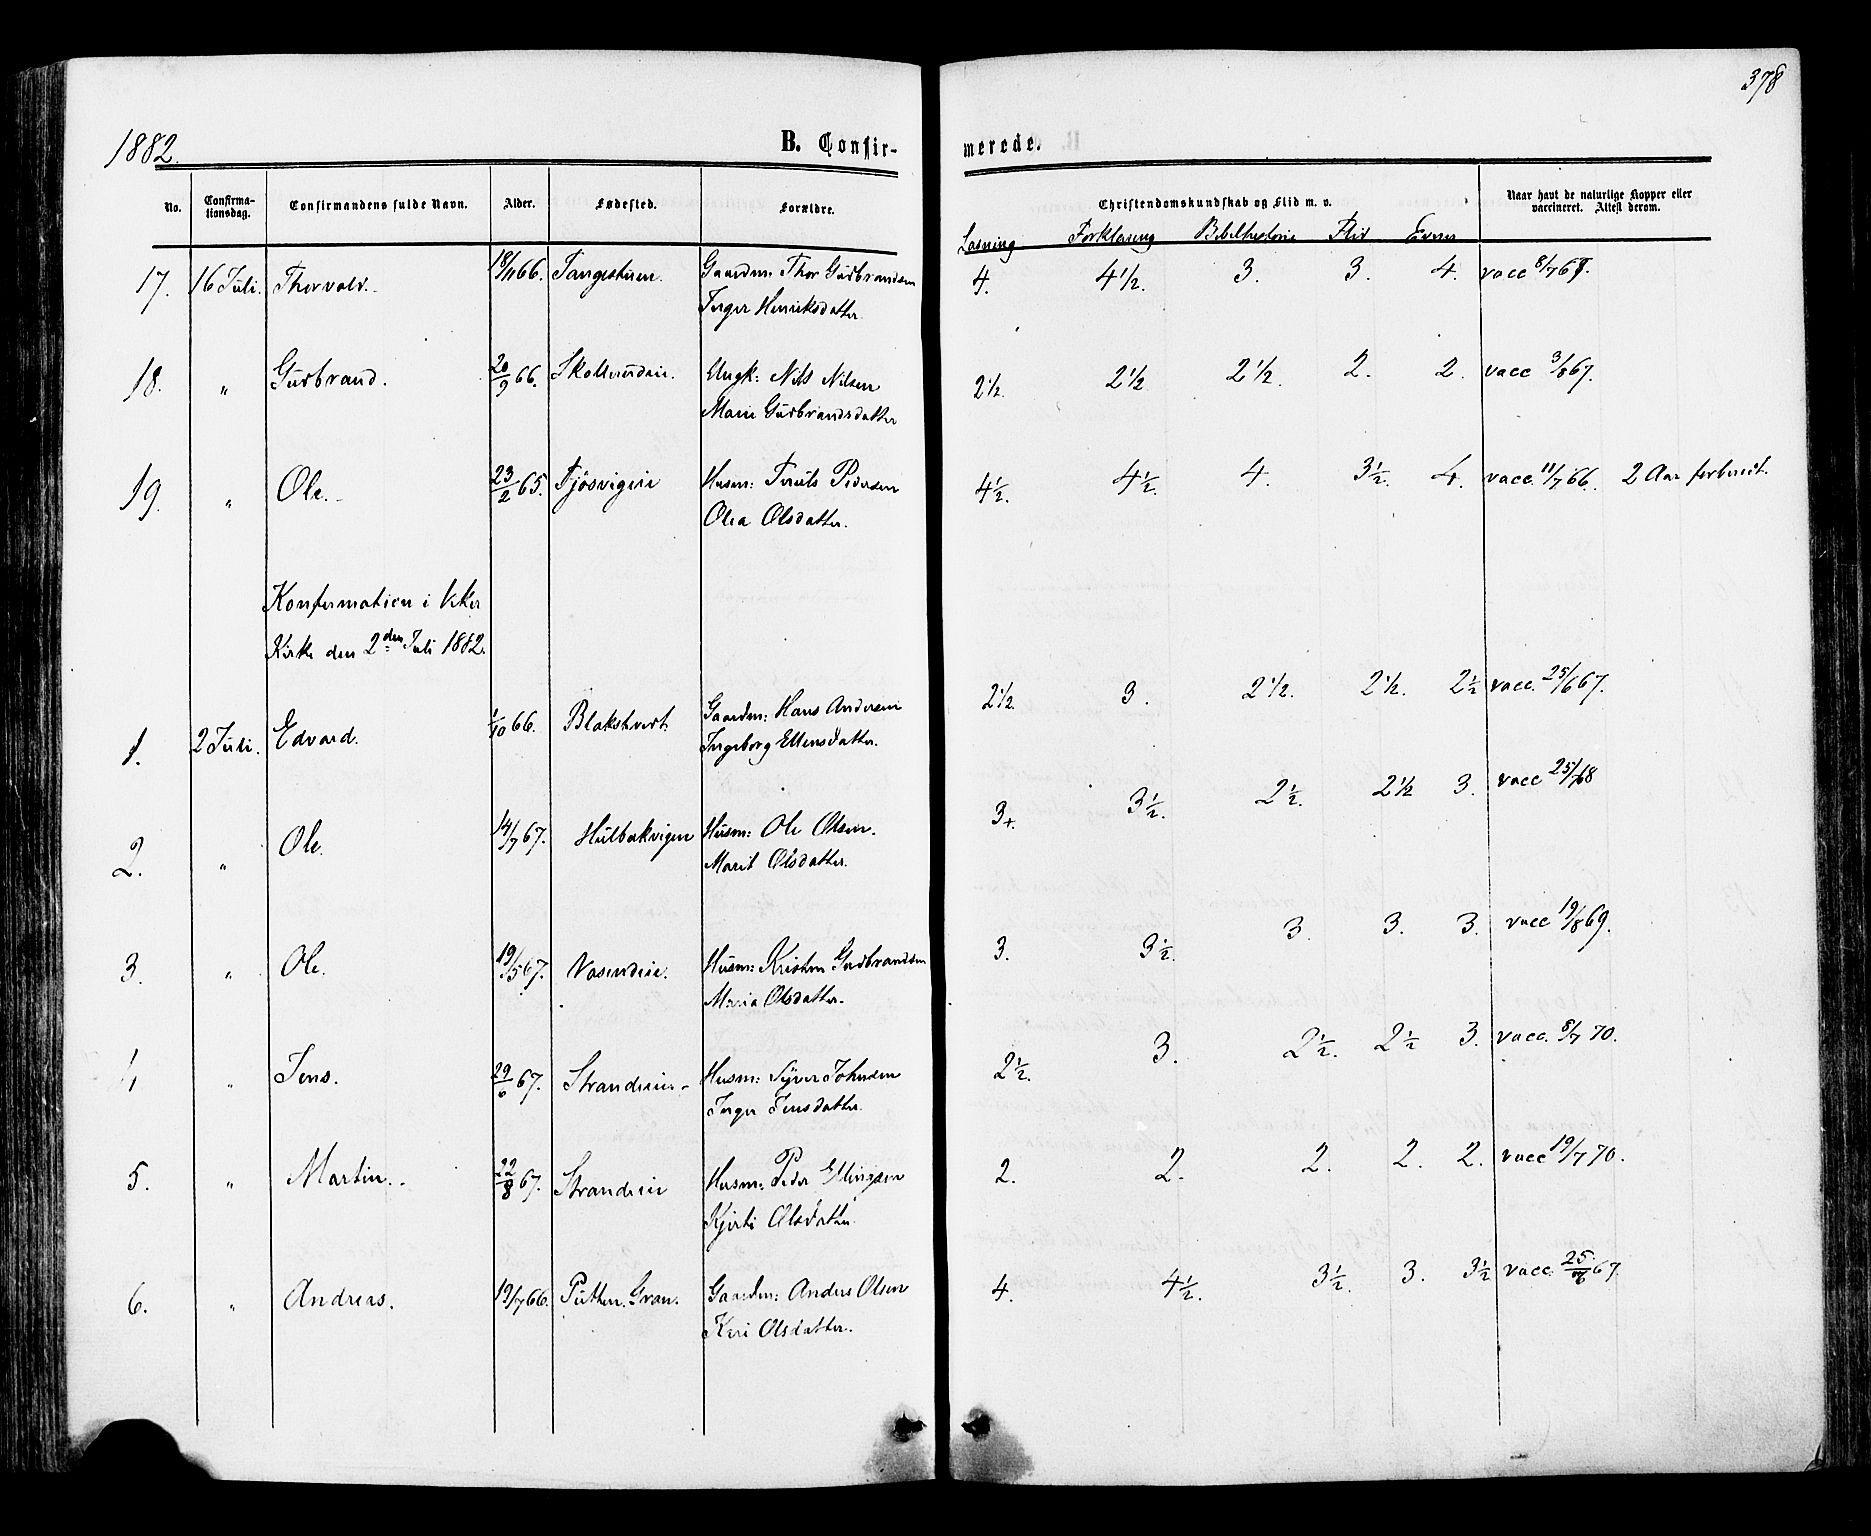 378
1882.
B. Confirmerede.
No. Confirmationsdag. Confirmandens fulde Navn. Alder. Fødested. Forældre. Christendomskundskab og Flid m. v. Naar havt de naturlige Kopper eller vaccineret. Attest derom.
Læsning Forklaring Bibelhistorie Flid Evner
17. 16 Juli. Thorvald. 18/11 66. Tangestuen. Gaardm: Thor Gudbrandsen 4. 4 1/2. 3. 3. 4. vacc 8/7 67.
Inger Henriksdatter
18. " Gudbrand. 20/9 66. Ungk: Nils Nilsen 2 1/2. 2 1/2 2 1/2. 2. 2. vacc 3/8 67.
Marie Gudbrandsdatter
19. " Ole. 23/2 65. Husm: Truls Pedersen 4 1/2. 4 1/2. 4. 3 1/2. 4. vacc. 11/7 66. 2 Aar forberedt.
Olea Olsdatter.
Konfirmation i Veker
Kirke den 2den Juli 1882.
1. 2 Juli. Edvard. 1/10 66. Gaardm: Hans Andersen 2 1/2. 3. 2 1/2. 2 1/2. 2 1/2 vacc. 25/6 67.
Ingeborg Ellensdatter.
2. " Ole. 14/7 67. Hulbakvigen Husm: Ole Olsen. 3+. 3 1/2. 2 1/2. 2 1/2 3. vacc 25/7 68
Marit Olsdatter.
3. " Ole. 19/5 67. Vasendeie. Husm: Kristen Gudbrandsen 3. 3 1/2. 3. 3. 3. vacc 19/8 69.
Maria Olsdatter.
4 " Jens. 29/6 67. Strandeie Husm: Syver Johnsen 2 1/2. 3. 2 1/2. 2 1/2 3. vacc. 8/7 70.
Inger Jensdatter.
5. " Martin. 22/8 67. Strandeie Husm: Peder Ellingsen 2. 2. 2. 2. 2. vacc 19/7 70.
Kjersti Olsdatter.
6. " Andreas. 19/7 66. Putten. Gran. Gaardm: Anders Olsen 4. 4 1/2. 3 1/2. 3. 3 1/2 vacc. 25/6 67.
Kari Olsdatter.